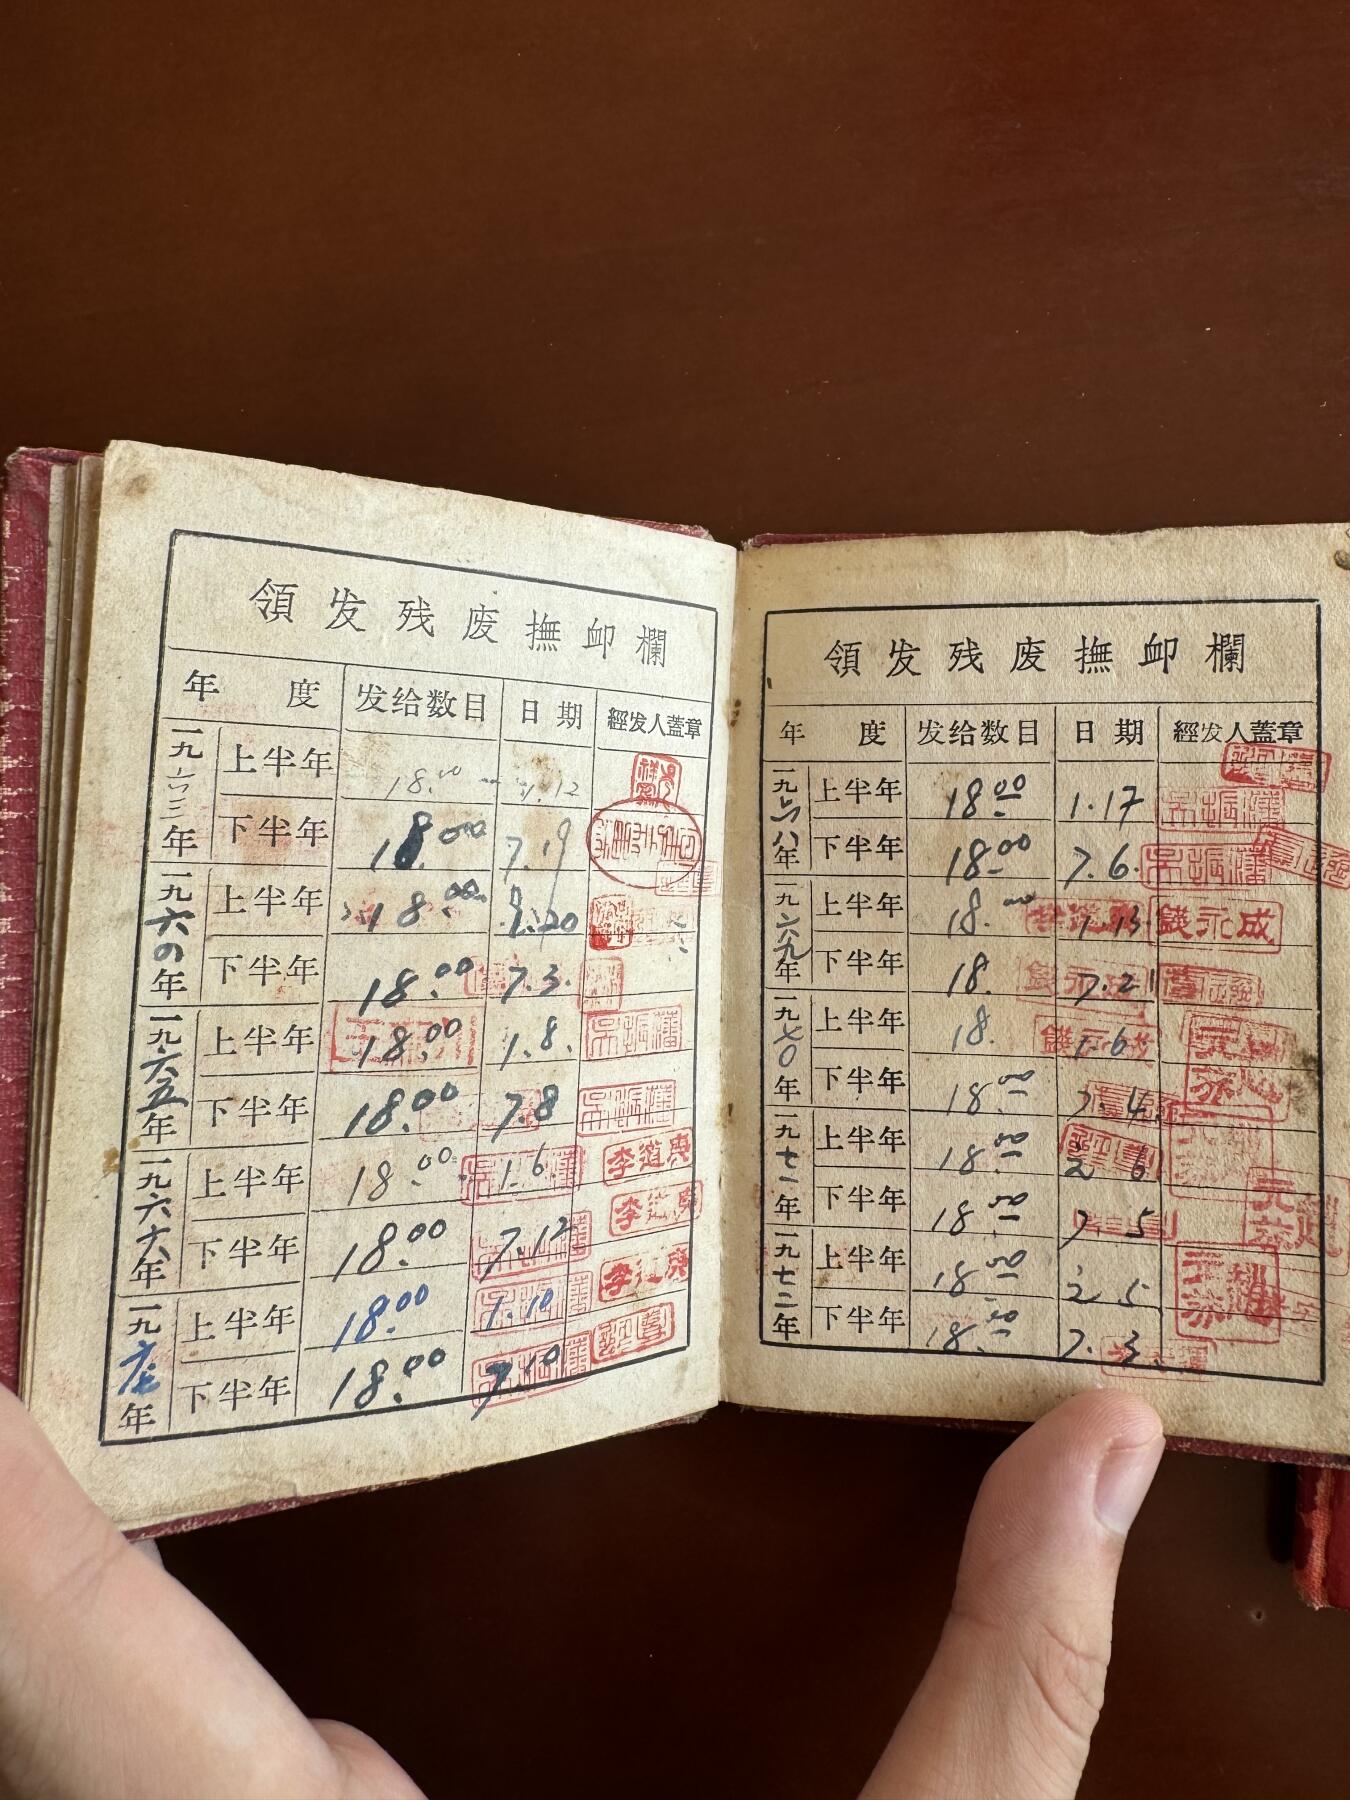 領发残废撫卹欄
年度 发给数目 日期 經发人蓋章
一九六三年 上半年 18.00 1.12
下半年 18.00 7.19
一九六四年 上半年 18.00 1.20
下半年 18.00 7.3.
一九六五年 上半年 18.00 1.8.
下半年 18.00 7.8
一九六六年 上半年 18.00 1.6. 李道庚
下半年 18.00 7.12 李道庚
一九六七年 上半年 18.00 1.10 李道庚
下半年 18.00 7.10
領发残废撫卹欄
年度 发给数目 日期 經发人蓋章
一九六八年 上半年 18.00 1.17
下半年 18.00 7.6.
一九六九年 上半年 18.00 1.13 錢永成
下半年 18. 7.21
一九七〇年 上半年 18. 1.6
下半年 18.00 7.4.
一九七一年 上半年 18.00 2 6
下半年 18.00 7. 5
一九七二年 上半年 18.00 2 5
下半年 18.00 7.3.